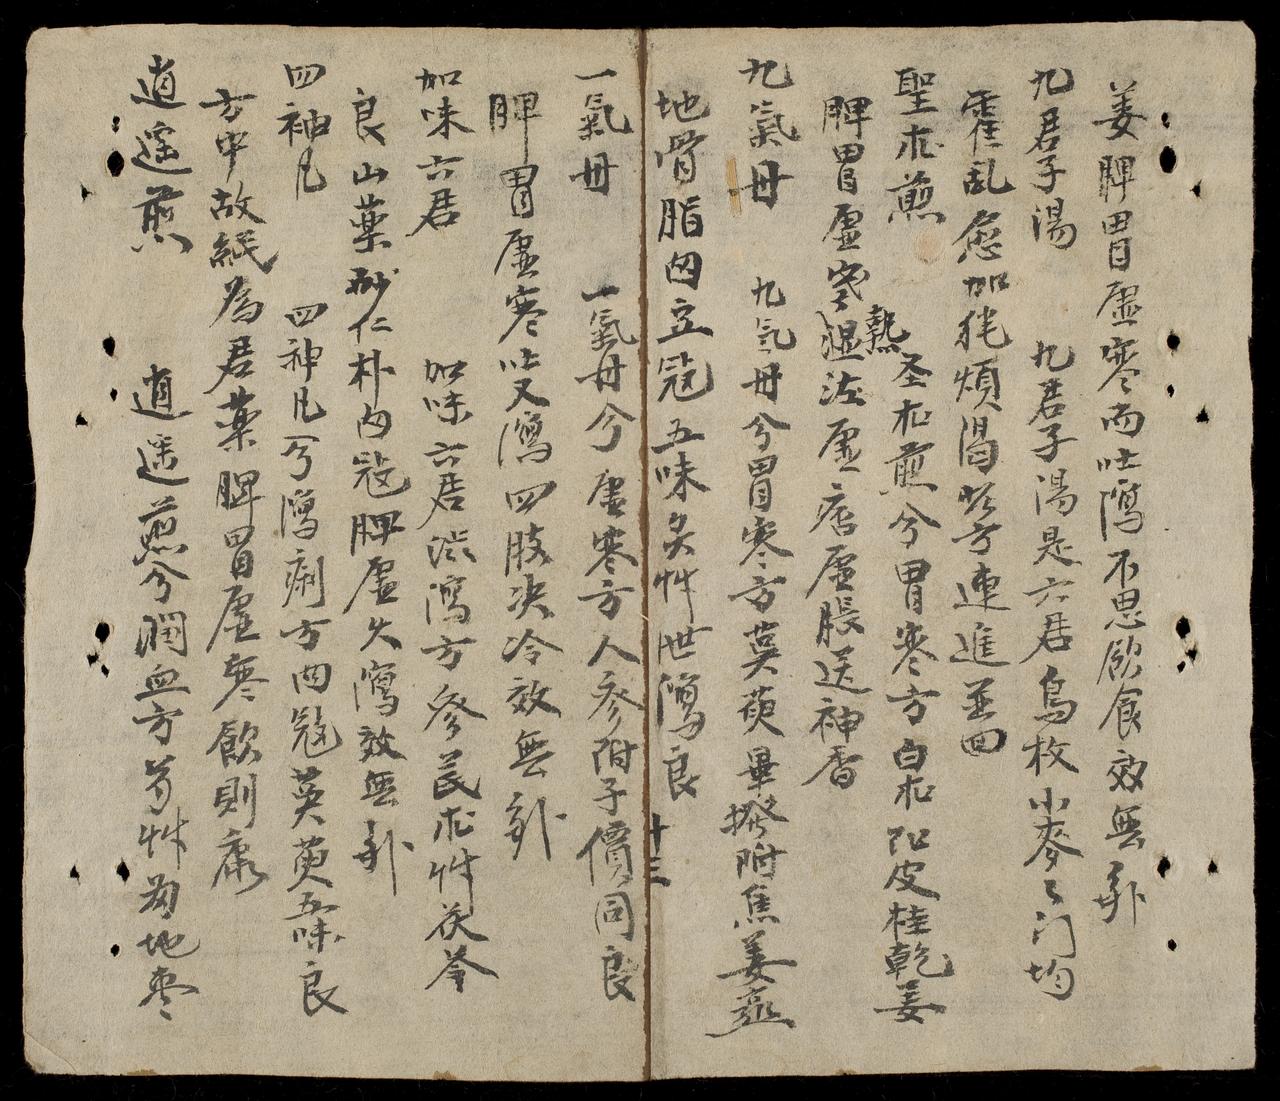 姜脾胃虛寒而吐瀉不思飲食效無卦
九君子湯 九君子湯是六君烏枚小麥々门均
霍乱愈加狂煩渴 方連進並回
聖朮煎 圣朮煎兮胃寒方白朮 皮桂乾姜
脾胃虛寒濕熱法虛痞虛脹送神香
九氣丹 九气丹兮胃寒方萸 畢撥附焦姜
地骨脂肉立蔻五味炙艸世瀉良
十三
一氣丹 一氣丹兮虛寒方人參附子價同良
脾胃虛寒吐又瀉四肢决冷效無卦
加味六君 加味六君 瀉方參芪朮艸茯苓
良山藥砂仁朴肉蔻脾虛久瀉效無卦
四神凡 四神凡兮瀉痢方肉蔻萸 五味良
方中故紙為君藥脾胃虛寒飲則康
逍遥煎 逍遥煎兮潤血方芎艸 地枣